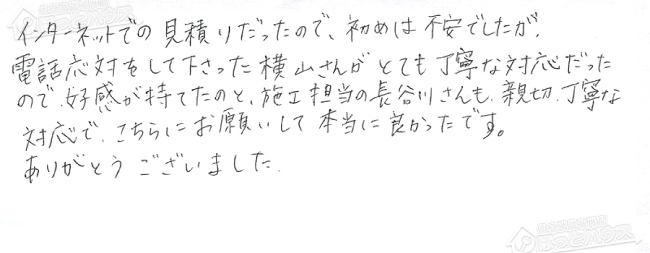 インターネットでの見積りだったので、初めは不安でしたが、
電話応対をして下さった横山さんがとても丁寧な対応だった
ので好感が持てたのと、施工担当の長谷川さんも、親切、丁寧な
対応で、こちらにお願いして本当に良かったです。
ありがとうございました.